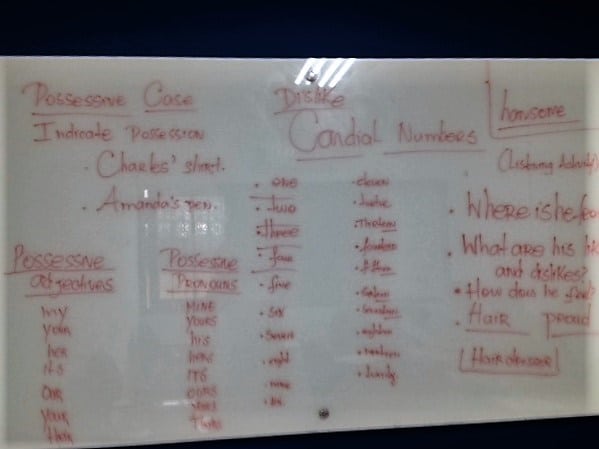 Possessive Case
Indicate Possession
· Charles' shirt.
· Amanda's pen.
Possessive
adjectives
my
your
her
its
our
your
their
Possessive
Pronouns
MINE
YOURS
his
hers
ITS
OURS
YOURS
Theirs
Dislike
Candial Numbers
· one
· two
· three
· four
· five
· six
· seven
· eight
· nine
· ten
· eleven
· twelve
· Thirteen
· fourteen
· fifteen
· sixteen
· seventeen
· eighteen
· nineteen
· twenty
hansome
(Listening Activity)
· Where is he
· What are his
and dislikes?
· How does he feel?
· Hair proud
Hairdresser